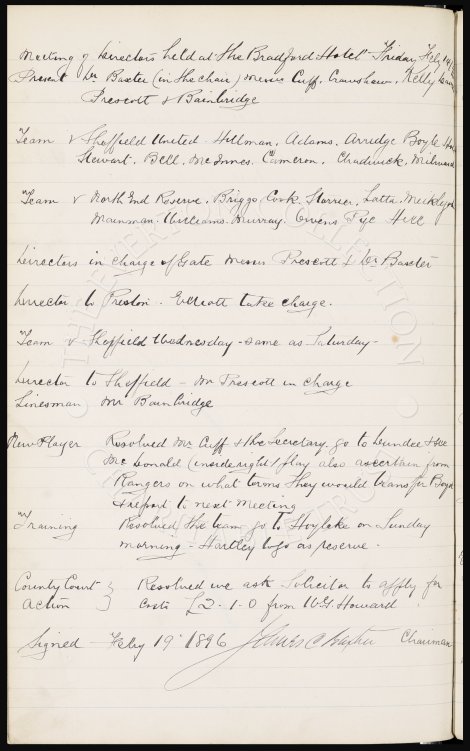 Meeting of Directors held at the Bradford Hotel Friday Feby 14/96
Present Dr Baxter (in the chair) Messrs Cuff. Crawshaw. Kelly
Prescott & Bainbridge
Team v Sheffield United. Hillman. Adams. Arridge Boyle
Stewart. Bell. McInnes. Cameron. Chadwick. Milward
Team v North End Reserve. Briggs Cook. Storrier. Latta. Meiklejohn
Mainman. Williams. Murray. Owens Pye Hill
Directors in charge of Gate Messrs Prescott & Dr Baxter
Director to Preston. Elliott takes charge.
Team v Sheffield Wednesday - same as Saturday -
Director to Sheffield - Mr Prescott in charge
Linesman Mr Bainbridge
New Player Resolved Mr Cuff & the Secretary. go to Dundee & see
McDonald (inside right) play also ascertain from
Rangers on what terms they would transfer Boyd
& report to next Meeting
Training Resolved the team go to Hoylake on Sunday
morning - Hartley to go as reserve.
County Court } Resolved we ask Solicitor to apply for
Action } Costs £2-1-0 from W.G. Howard
Signed - Feby 19th 1896 James C Baxter Chairman
THE EVERTON COLLECTION